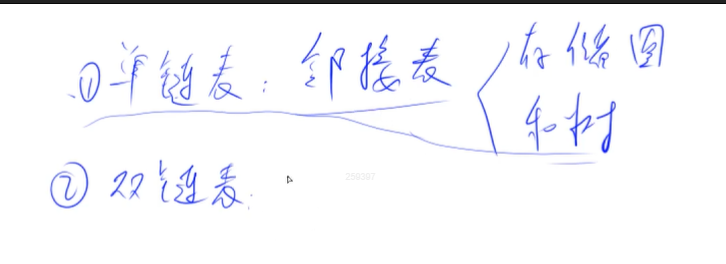 ① 单链表：邻接表 存储图
和树
② 双链表：
259397